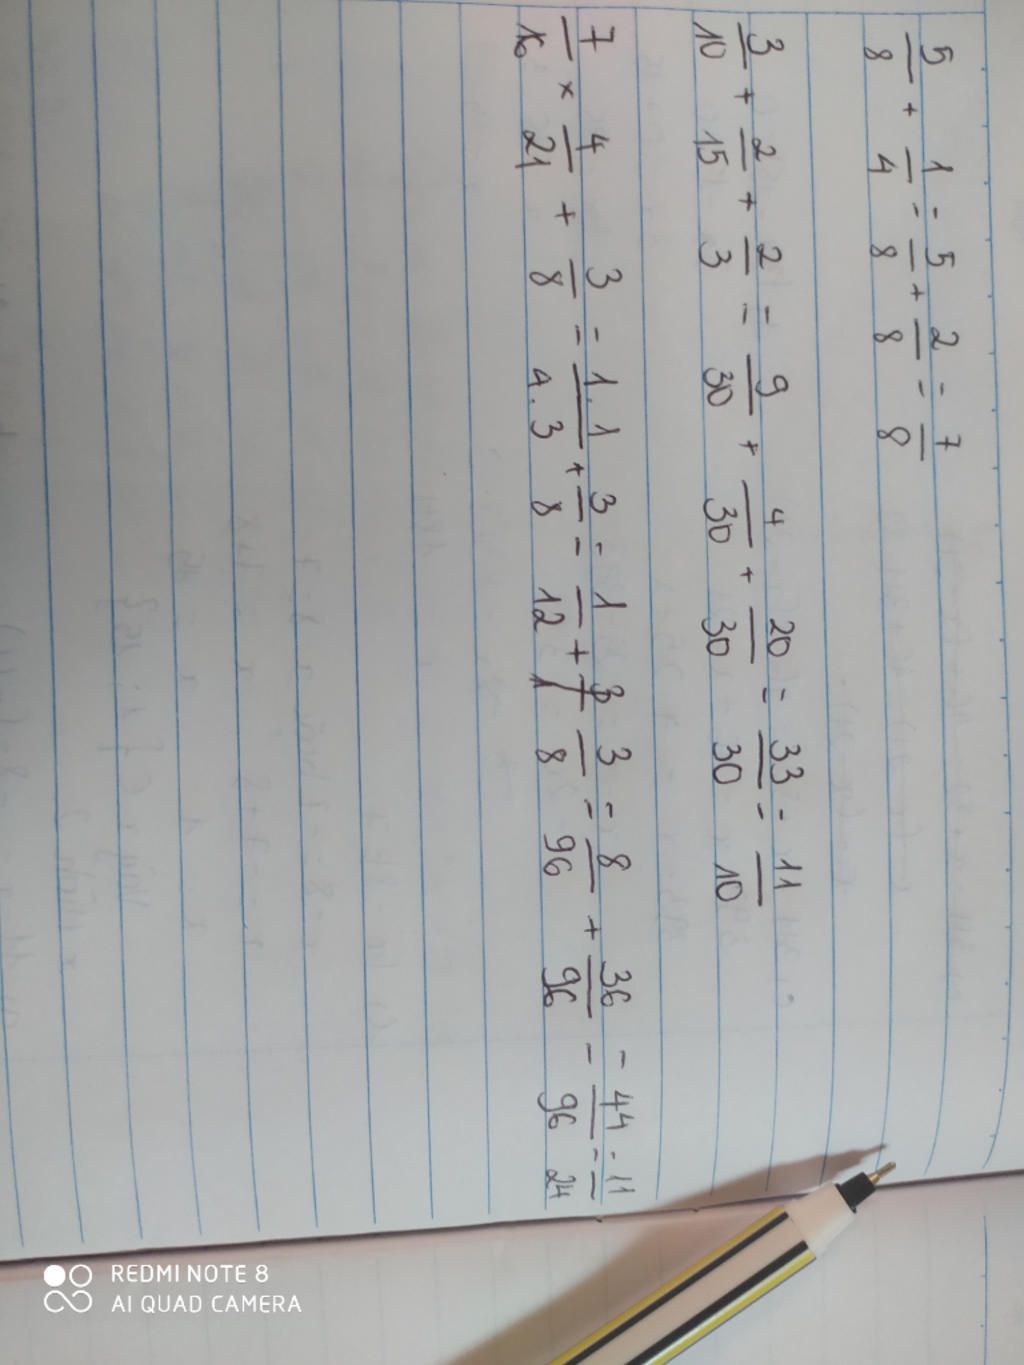 5/8 + 1/4 = 5/8 + 2/8 = 7/8
3/10 + 2/15 + 2/3 = 9/30 + 4/30 + 20/30 = 33/30 = 11/10
7/16 × 4/21 + 3/8 = 1.1/4.3 + 3/8 = 1/12 + 3/8 = 8/96 + 36/96 = 44/96 = 11/24
REDMI NOTE 8
AI QUAD CAMERA